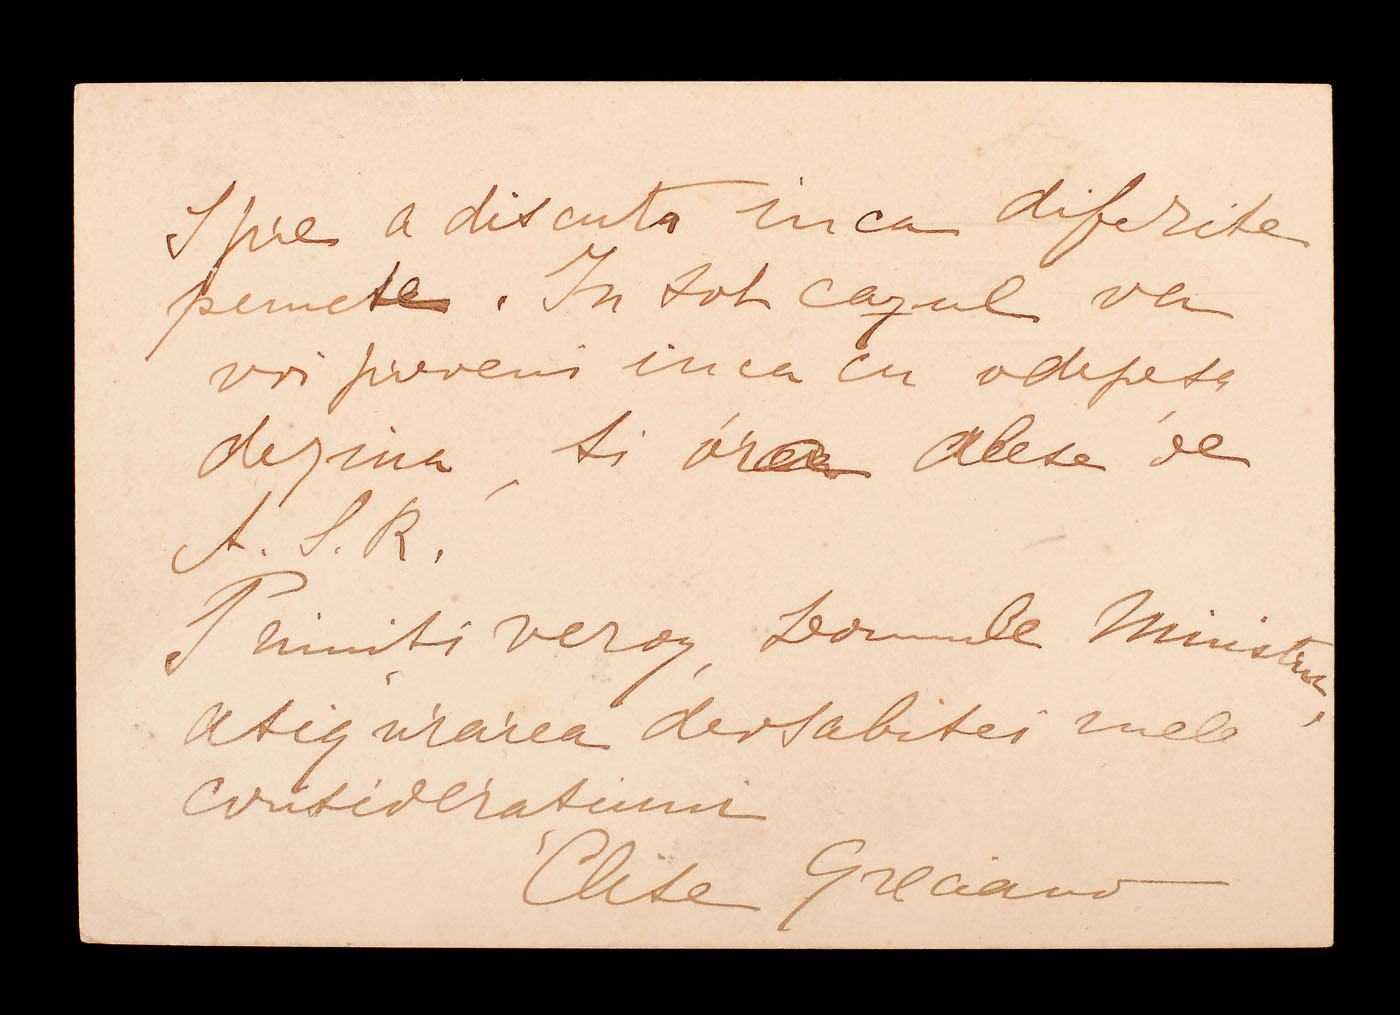 Spre a discuta inca diferite
puncte. In tot cazul va
voi preveni inca cu o depesa
de ziua, si óra alese de
A. S. R.
Primiti ve rog, Domnule Ministru,
asigurarea deosabitei mele
consideratiuni
Elise Greciano